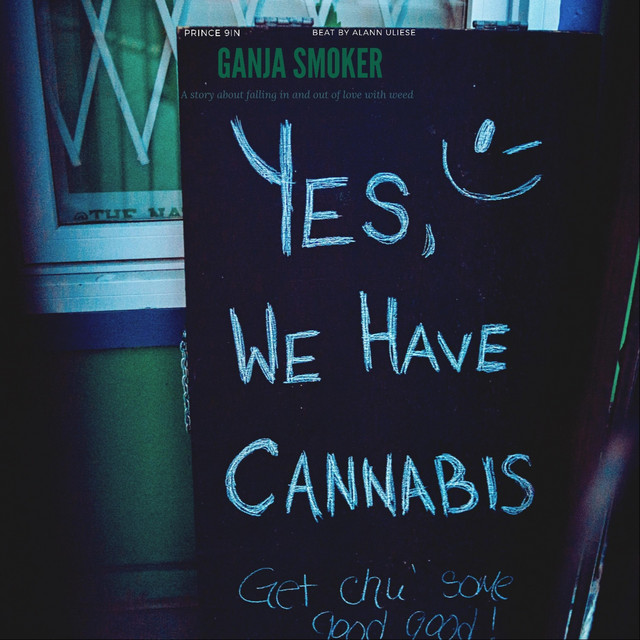 PRINCE 9IN BEAT BY ALANN ULIESE
GANJA SMOKER
A story about falling in and out of love with weed
YES,
WE HAVE
CANNABIS
Get chu' some
good good!
@THE NA